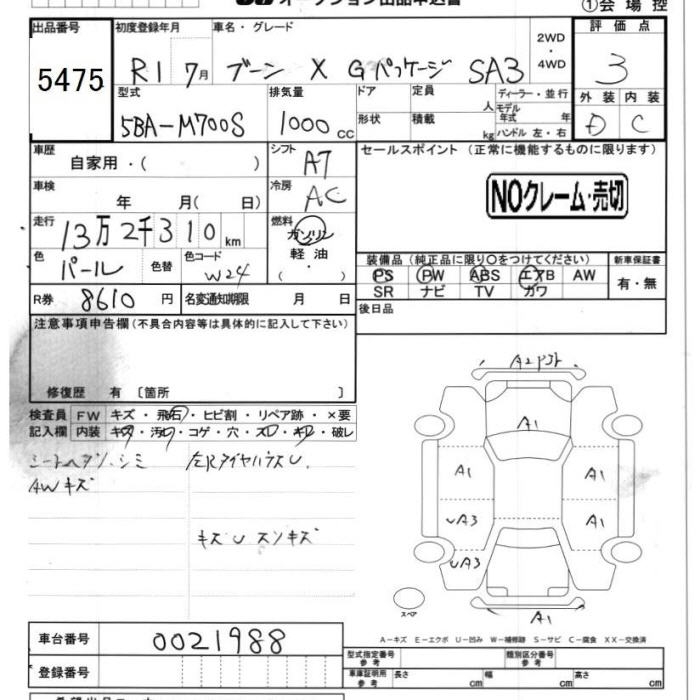 オークション出品申込書
①会場控
出品番号 初度登録年月 車名・グレード 評価点
5475 R1 7月 ブーン X Gパッケージ SA3 2WD・4WD 3
型式 排気量 ドア 定員 人 ディーラー・並行 外装 内装
5BA-M700S 1000 cc 形状 積載 kg モデル年式 年 ハンドル 左・右 D C
車歴 シフト セールスポイント (正常に機能するものに限ります)
自家用・( ) A7
車検 冷房 NOクレーム・売切
年 月( 日) AC
走行 燃料
13万2千310km ガソリン
色 色替 色コード 軽油 装備品 (純正品に限り○をつけてください) 新車保証書
パール W24 ( ・ ) PS PW ABS エアB AW 有・無
SR ナビ TV カワ
R券 8610円 名変通知期限 月 日 後日品
注意事項申告欄(不具合内容等は具体的に記入して下さい)
修復歴 有 〔箇所 〕
検査員 FW キズ・飛石・ヒビ割・リペア跡・×要
記入欄 内装 キズ・汚れ・コゲ・穴・スレ・キレ・破レ
シートヘタリ・シミ 左RタイヤハウスU.
AWキズ
キズU スンキズ
A1
A1 A1
UA3 A1
UA3
A1
スペア
A-キズ E-エクボ U-凹み W-補修跡 S-サビ C-腐食 XX-交換済
車台番号 0021988 型式指定番号 参考 類別区分番号 参考
登録番号 車庫証明用 参考 長さ cm 幅 cm 高さ cm